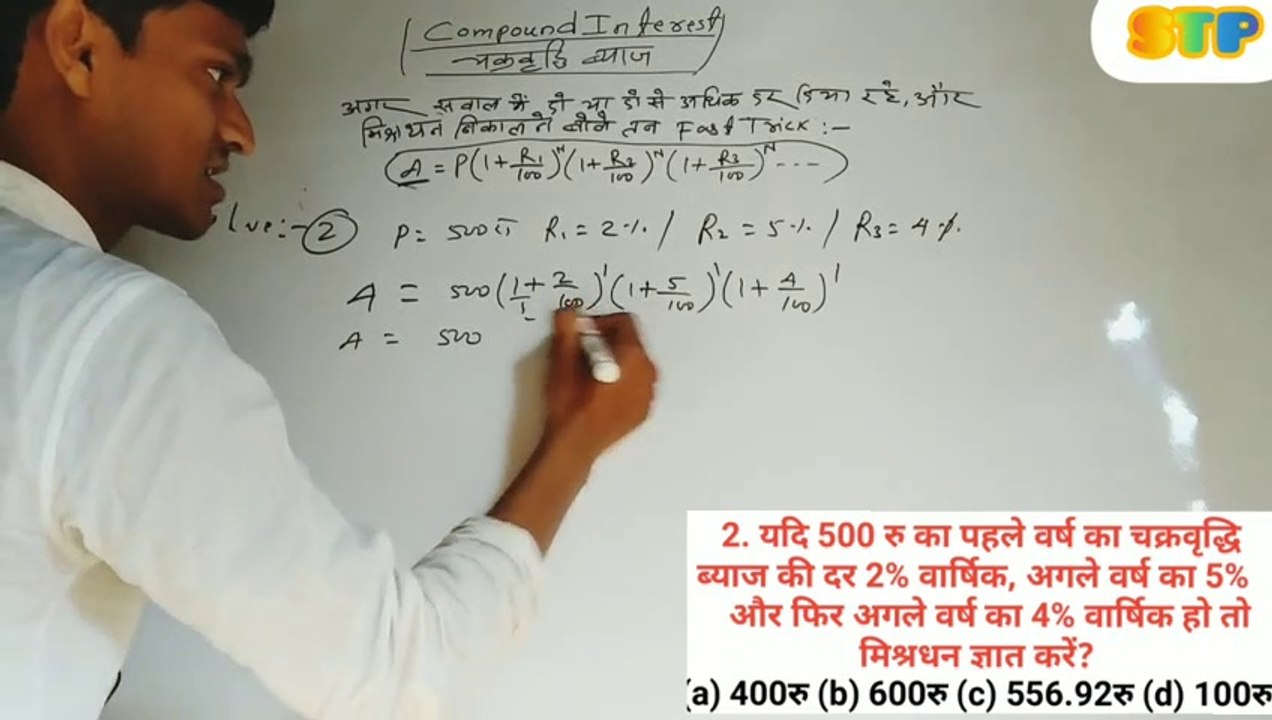 STP
Compound Interest
चक्रवृद्धि ब्याज
अगर सवाल में दो या दो से अधिक दर दिया रहे, और
मिश्रधन निकालने बोले तब Fast Trick :-
A = P(1+R1/100)^N (1+R2/100)^N (1+R3/100)^N ---
lve:- 2 P = 500रु R1 = 2% / R2 = 5% / R3 = 4%
A = 500(1/1+2/100)^1 (1+5/100)^1 (1+4/100)^1
A = 500
2. यदि 500 रु का पहले वर्ष का चक्रवृद्धि
ब्याज की दर 2% वार्षिक, अगले वर्ष का 5%
और फिर अगले वर्ष का 4% वार्षिक हो तो
मिश्रधन ज्ञात करें?
(a) 400रु (b) 600रु (c) 556.92रु (d) 100रु